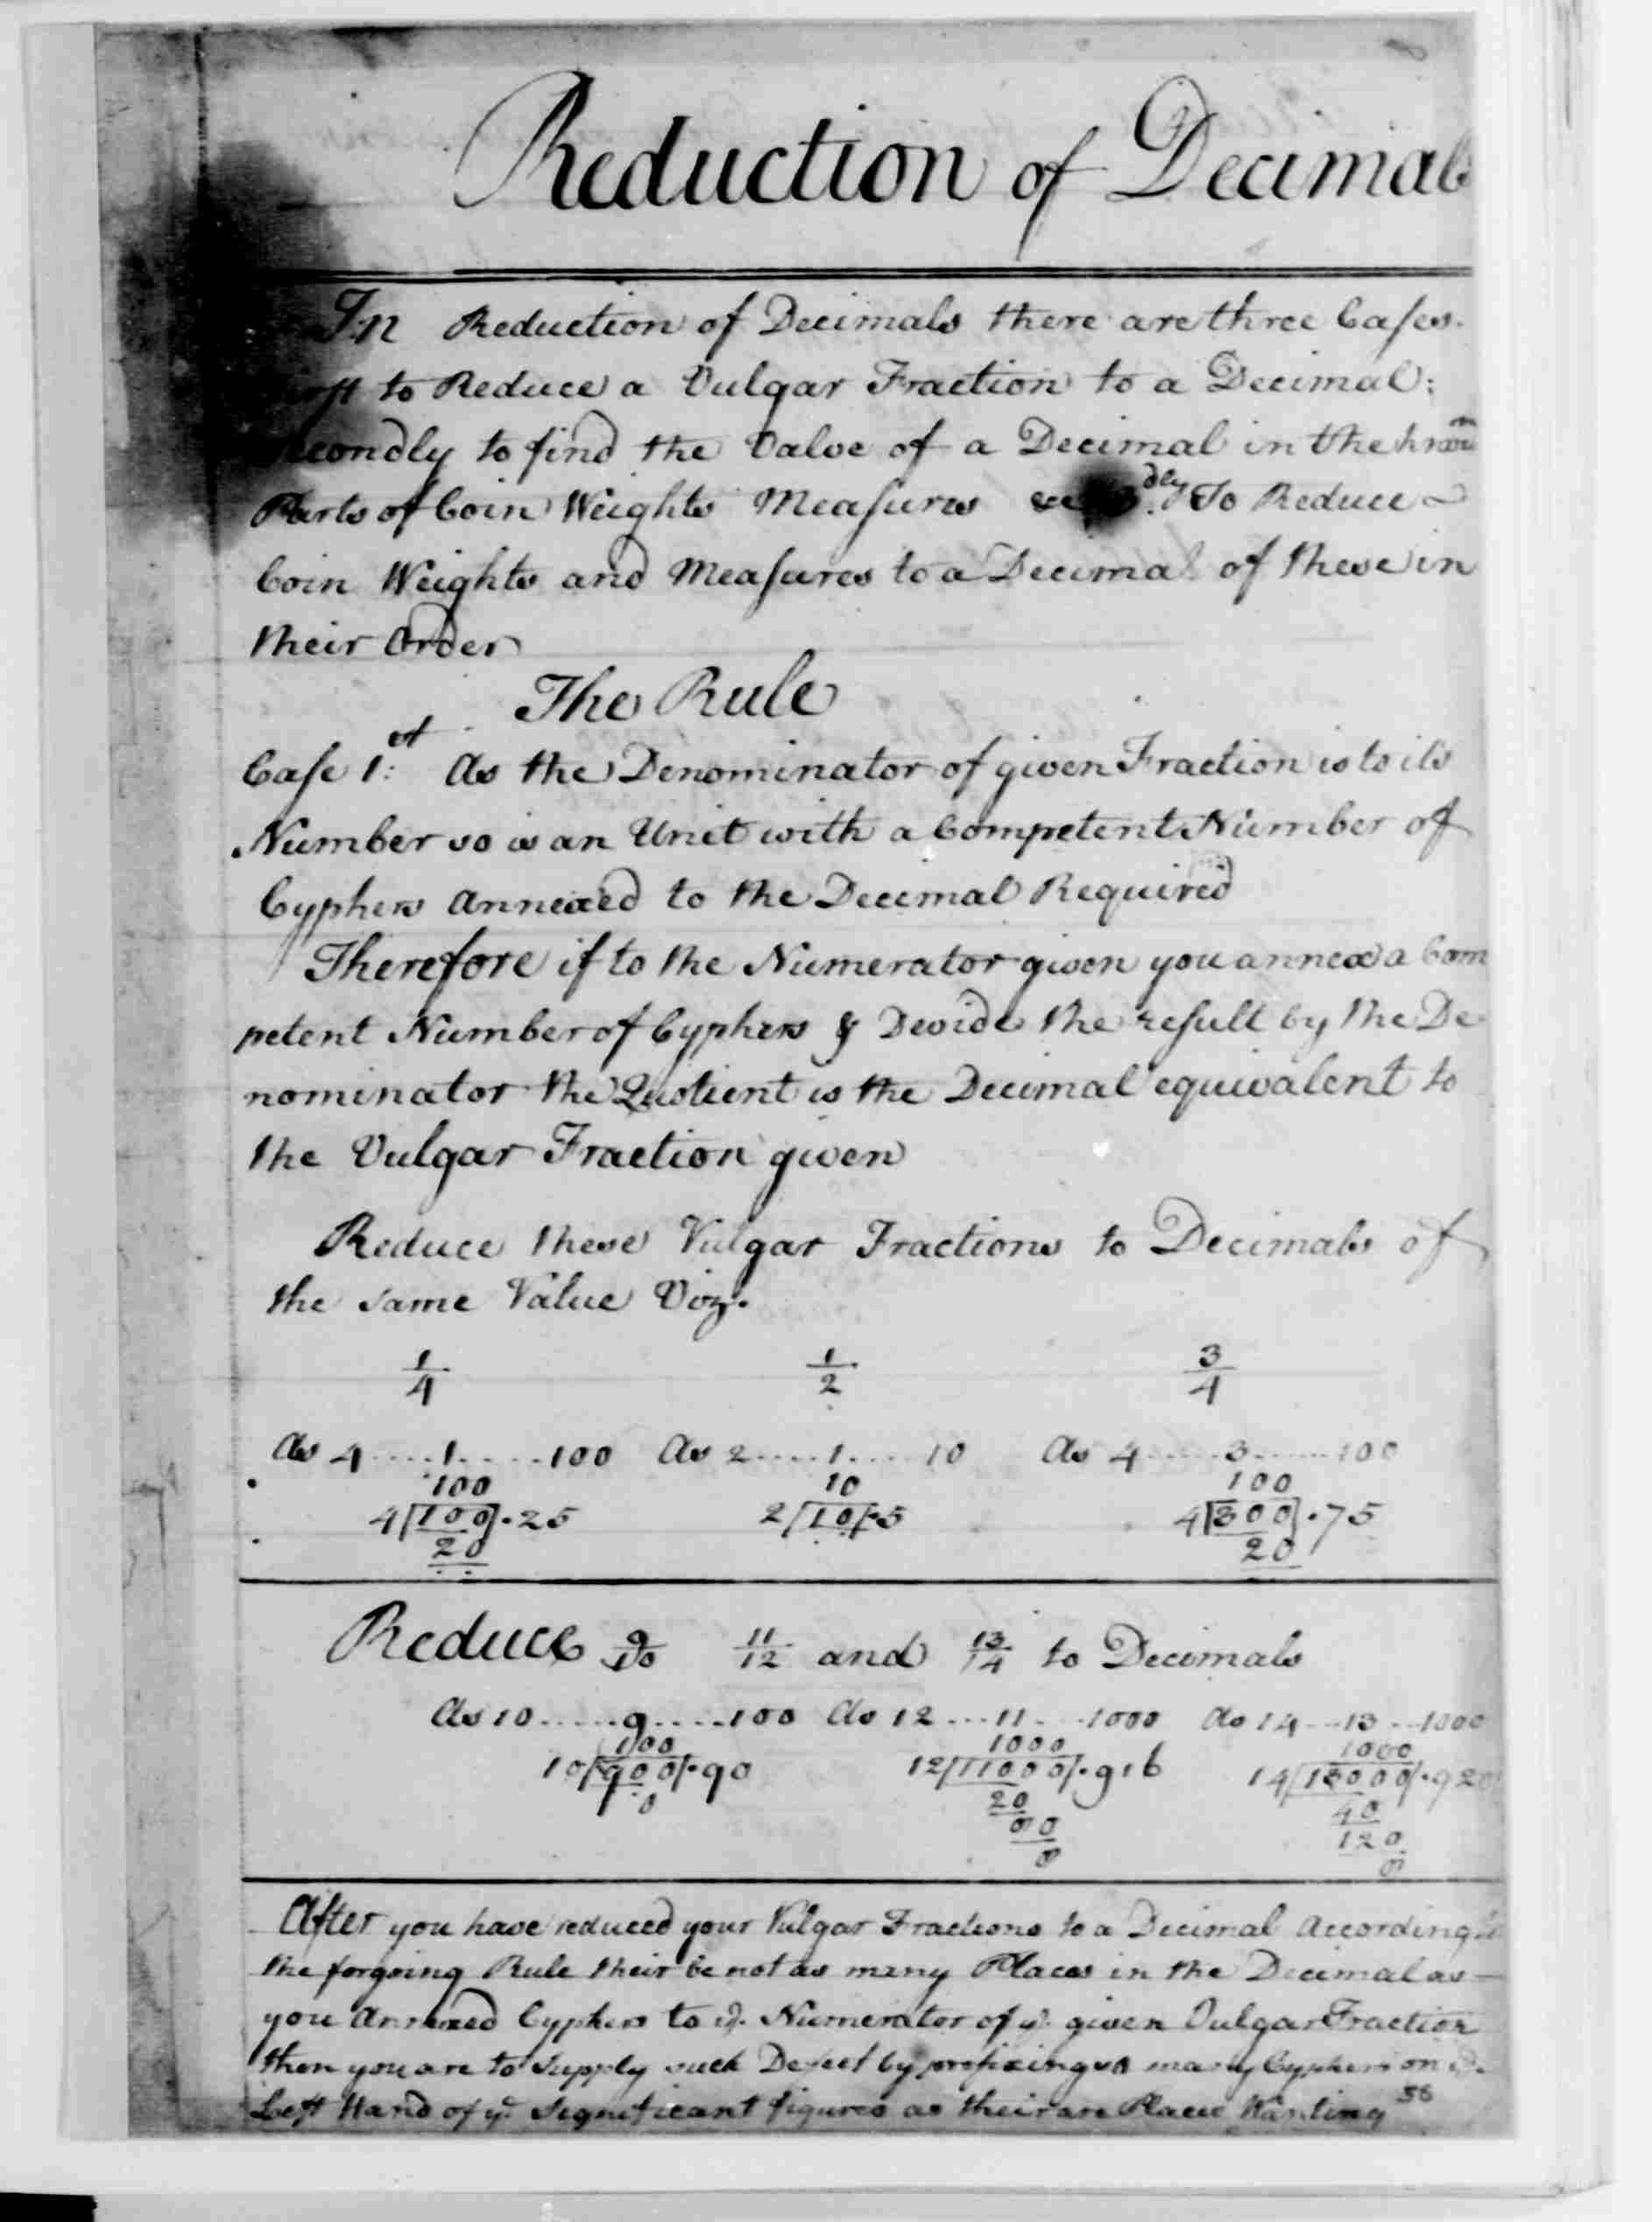 Reduction of Decimals
In Reduction of Decimals there are three Cases.
to Reduce a Vulgar Fraction to a Decimal:
to find the Valoe of a Decimal in the
Parts of Coin Weights Measures 3.dly To Reduce
Coin Weights and Measures to a Decimal of these in
their Order
The Rule
Case 1:st As the Denominator of given Fraction is to its
Number so is an Unit with a Competent Number of
Cyphers annexed to the Decimal Required
Therefore if to the Numerator given you annex a Com
petent Number of Cyphers & Devide the result by the De
nominator the Quotient is the Decimal equivalent to
the Vulgar Fraction given
Reduce these Vulgar Fractions to Decimals of
the same Value Viz.
1/4 1/2 3/4
As 4.....1.....100 As 2.....1....10 As 4.....3.....100
100 10 100
4/100/.25 2/10/.5 4/300/.75
20 20
Reduce 9/10 11/12 and 13/14 to Decimals
As 10.....9....100 As 12...11...1000 As 14...13...1000
100 1000 1000
10/900/.90 12/11000/.916 14/13000/.920
0 20 40
80 120
8
After you have reduced your Vulgar Fractions to a Decimal According
the forgoing Rule their be not as many Places in the Decimal as
you Annexed Cyphers to ye. Numerator of ye. given Vulgar Fraction
then you are to Supply such Defect by prefixing as many Cyphers on ye.
Left Hand of ye. Significant figures as their are Places Wanting 36